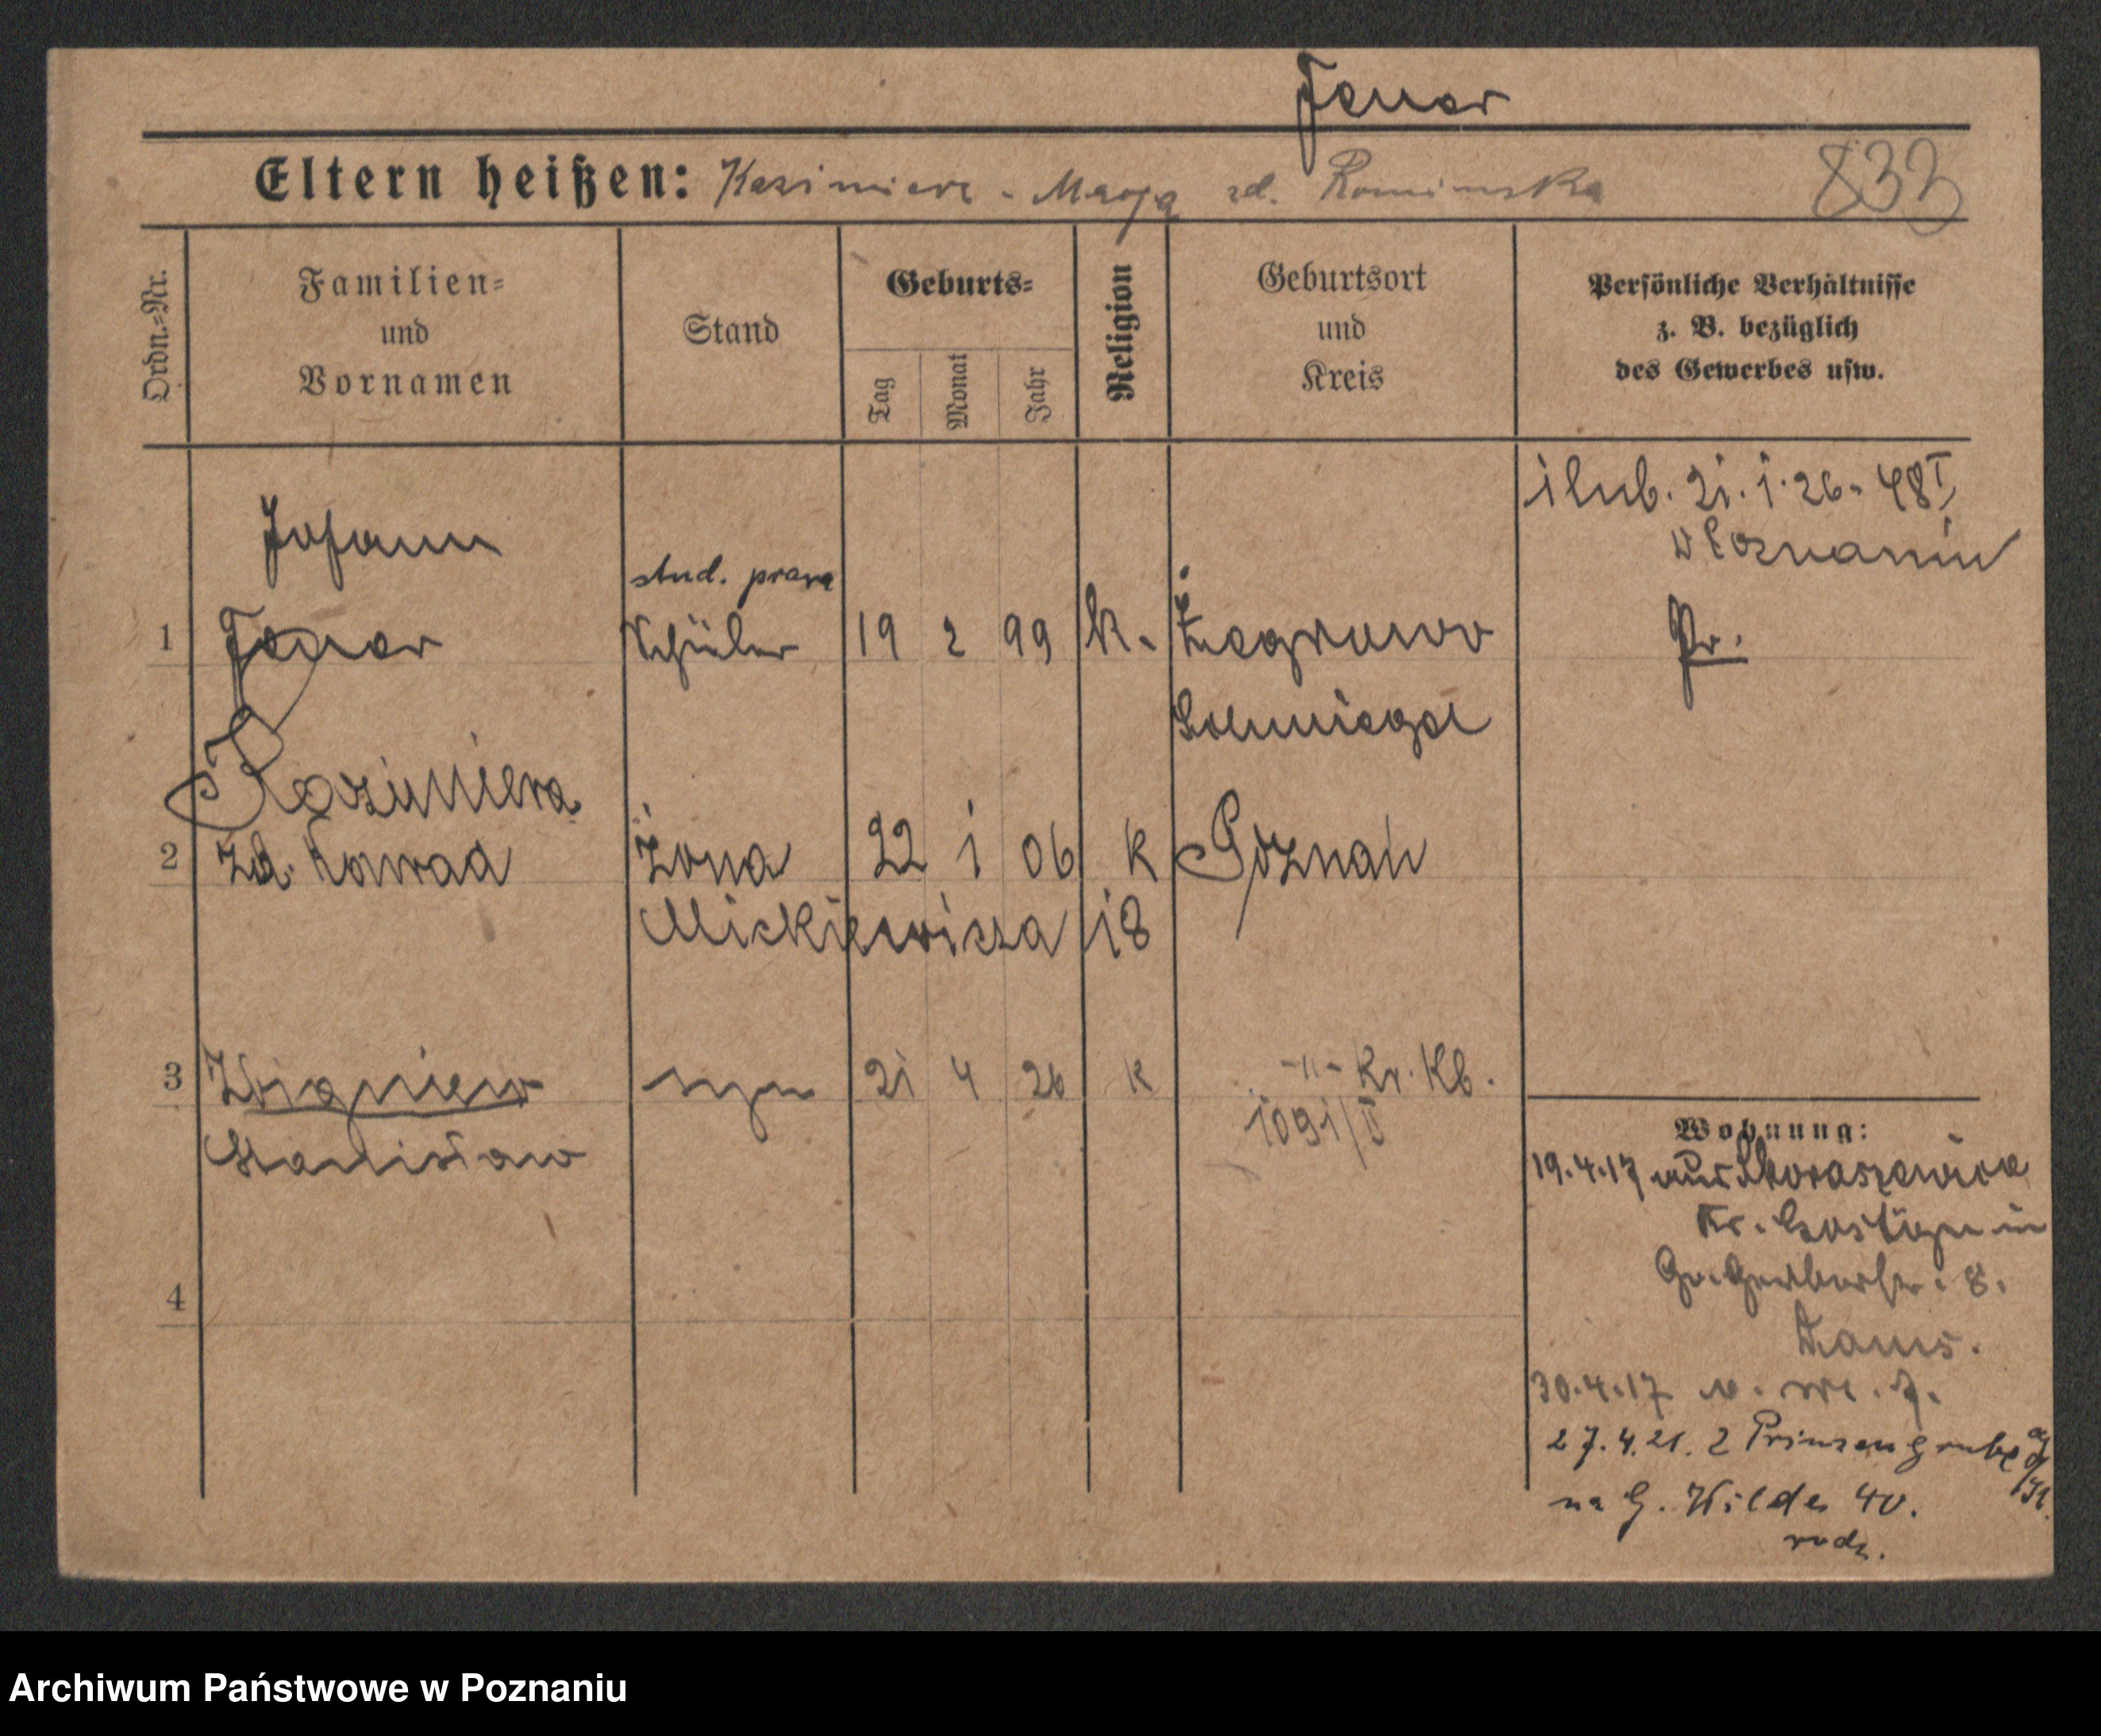 Jenar
Eltern heißen: Kazimierz - Marya zd. Romińska 833
Ordn.=Nr.
Familien= und Vornamen
Stand
Geburts=
Tag
Monat
Jahr
Religion
Geburtsort und Kreis
Persönliche Verhältnisse z. B. bezüglich des Gewerbes usw.
ślub. 21.1.26. 48 I
w Poznaniu
Johann
stud. prawa
1 Jenar Schüler 19 2 99 k. Żegrowo Pr.
Schmiegel
Kazimiera
2 zd. Konrad żona 22 1 06 k Poznań
Mickiewicza 18
3 Zbigniew syn 21 4 26 k -"- Kr. Kb.
1091/V
Stanisław
Wohnung:
19.4.17 aus Skoraszewice
Kr. Gostyn in
8.
4
30.4.17
27.4.21. 2 Prinzengrube
na G. Wilde 40.
rodz.
Archiwum Państwowe w Poznaniu